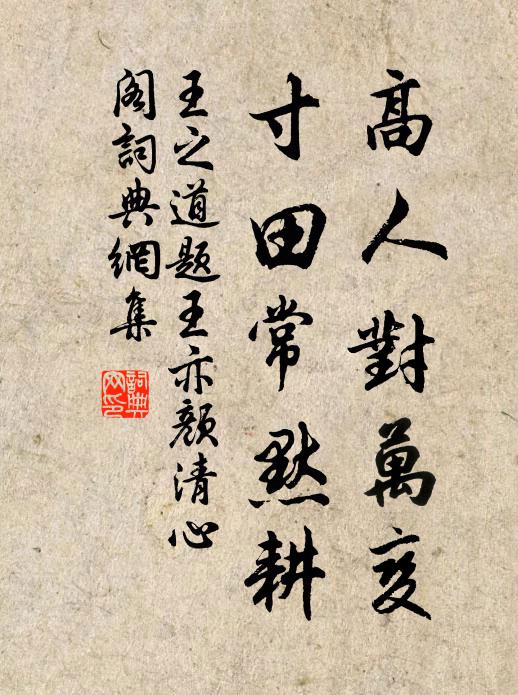 高人對萬变
寸田常默耕
王之道題王亦顏清心
閣詞典網集
詞典网印